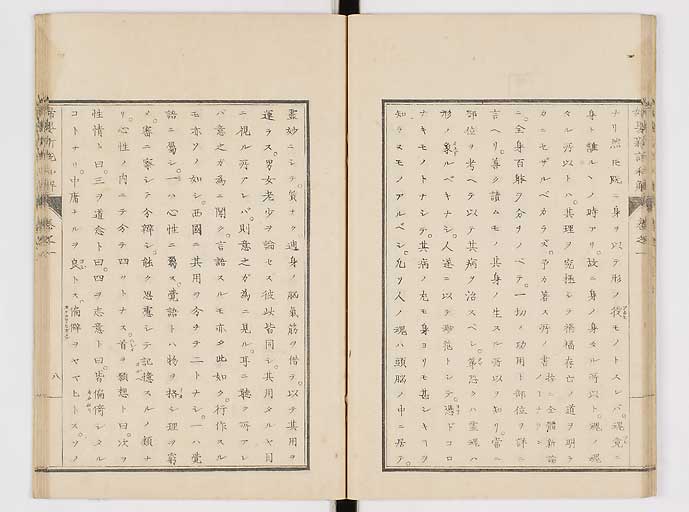 ナリ然レ𪜈既ニ身ヲ以テ形ノ役モノトスレバ魂竟ニ
身ト離ルヽノ時アリ故ニ身ノ身タル所以ト魂ノ魂
タル所以トハ其理ヲ究極シテ禍福存亡ノ道ヲ明ラ
カニセザルベカラズ予カ著ス所ノ書
ニ全身百骸ヲ分ツノベテ一切ノ功用ト部位ヲ詳ニ
言ヘリ善ク讀ムモノ其身ノ生スル所以ヲ知リ當ニ
部位ヲ考ヘテ以テ其病ヲ治スベシ
形ノ象ルベキナシ人遂ニ以テ
ナキモノトナシテ其病ノ
知ラスモノアルベシ凢ソ人ノ魂ハ頭脳ノ中ニ居テ
靈妙ニシテ質ナク遍身ノ脳氣筋ヲ借テ以テ其用ヲ
運ラス男女老少ヲ論セス彼此皆同シ其用タルヤ目
ニ視ル所アレバ則意之ガ為ニ見ル耳ニ聽ク所アレ
バ意之ガ為ニ聞ク言語スルモ亦タ此如ク行作スル
モ亦タ此如シ西國ニ其用ヲ分チテ二トナシ一ハ覺
語ニ屬シ一ハ心性ニ屬ス覺語トハ物ヲ格シ理ヲ窮
メ審ニ察シテ分辨シ融ク思慮シテ記憶スルノ類ナ
リ心性ノ内ニテ分テ四ツトナス首ヲ願想ト曰次ヲ
性情ト曰三ヲ道意ト曰四ヲ志意ト曰皆偏倚シタル
コトナリ中庸ナルヲ良トス偏僻ヲヤマヒトスソノ
八